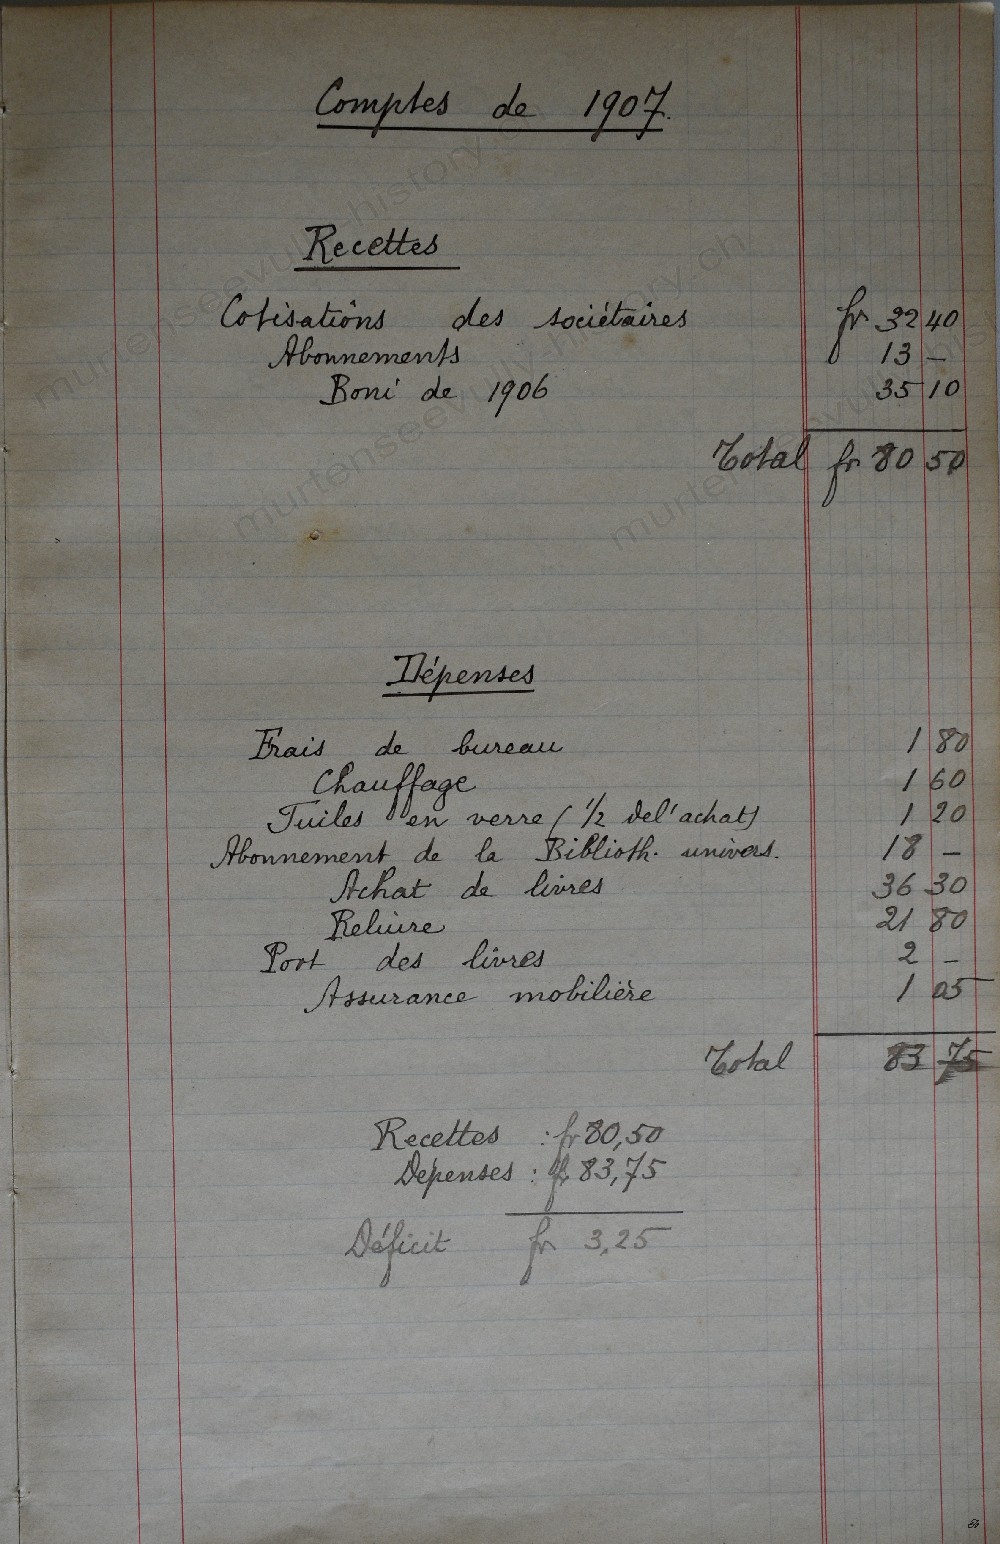 Comptes de 1907.
Recettes
Cotisations des sociétaires fr 32 40
Abonnements 13 —
Boni de 1906 35 10
Total fr 80 50
Dépenses
Frais de bureau 1 80
Chauffage 1 60
Tuiles en verre (1/2 de l'achat) 1 20
Abonnement de la Biblioth. univers. 18 —
Achat de livres 36 30
Reliure 21 80
Port des livres 2 —
Assurance mobilière 1 05
Total 83 75
Recettes : fr 80,50
Dépenses : fr 83,75
Déficit fr 3,25
murtenseevully-history.ch
murtenseevully-history.ch
murtenseevully-history.ch